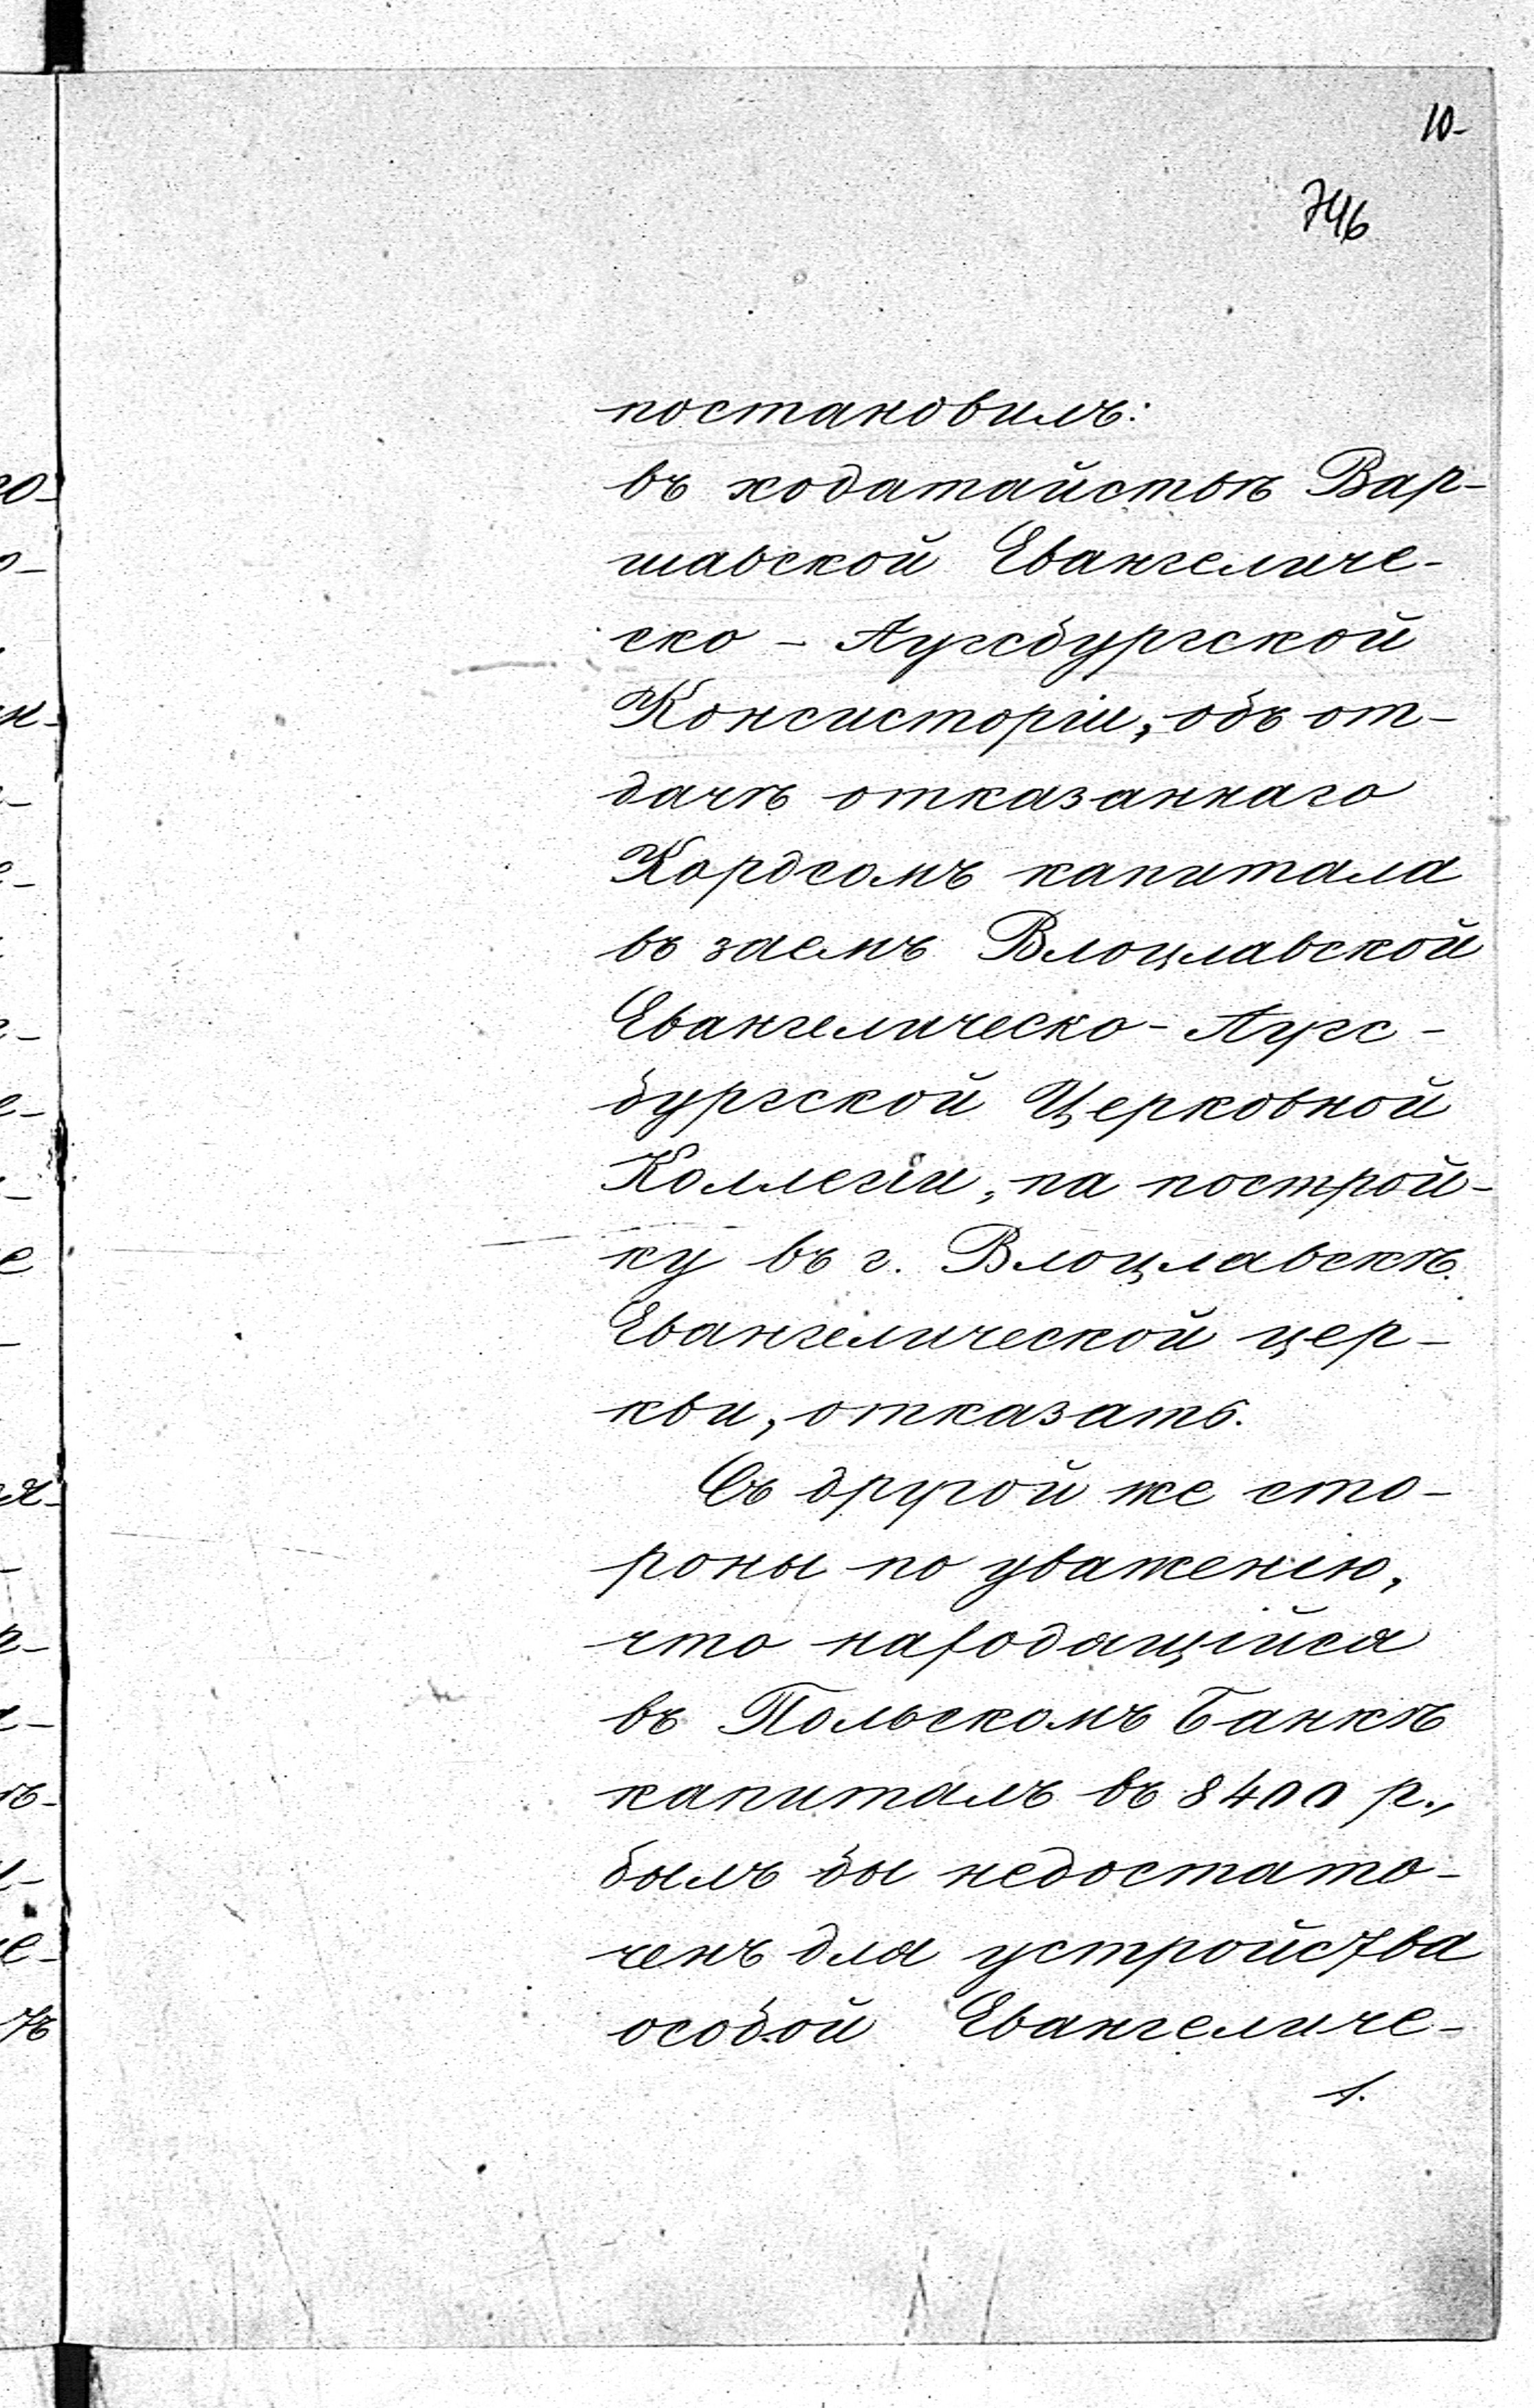 10-
746
постановилъ:
въ ходатайствѣ Вар-
шавской Евангеличе-
ско - Аугсбургской
Консисторіи, объ от-
дачѣ отказаннаго
Кордсомъ капитала
въ заемъ Влоцлавской
Евангелическо - Аугс-
бургской Церковной
Коллегіи, на построй-
ку въ г. Влоцлавскѣ
Евангелической цер-
кви, отказать.
Съ другой же сто-
роны по уваженію,
что находящійся
въ Польскомъ Банкѣ
капиталъ въ 8400 р.,
былъ бы недостато-
ченъ для устройства
особой Евангеличе-